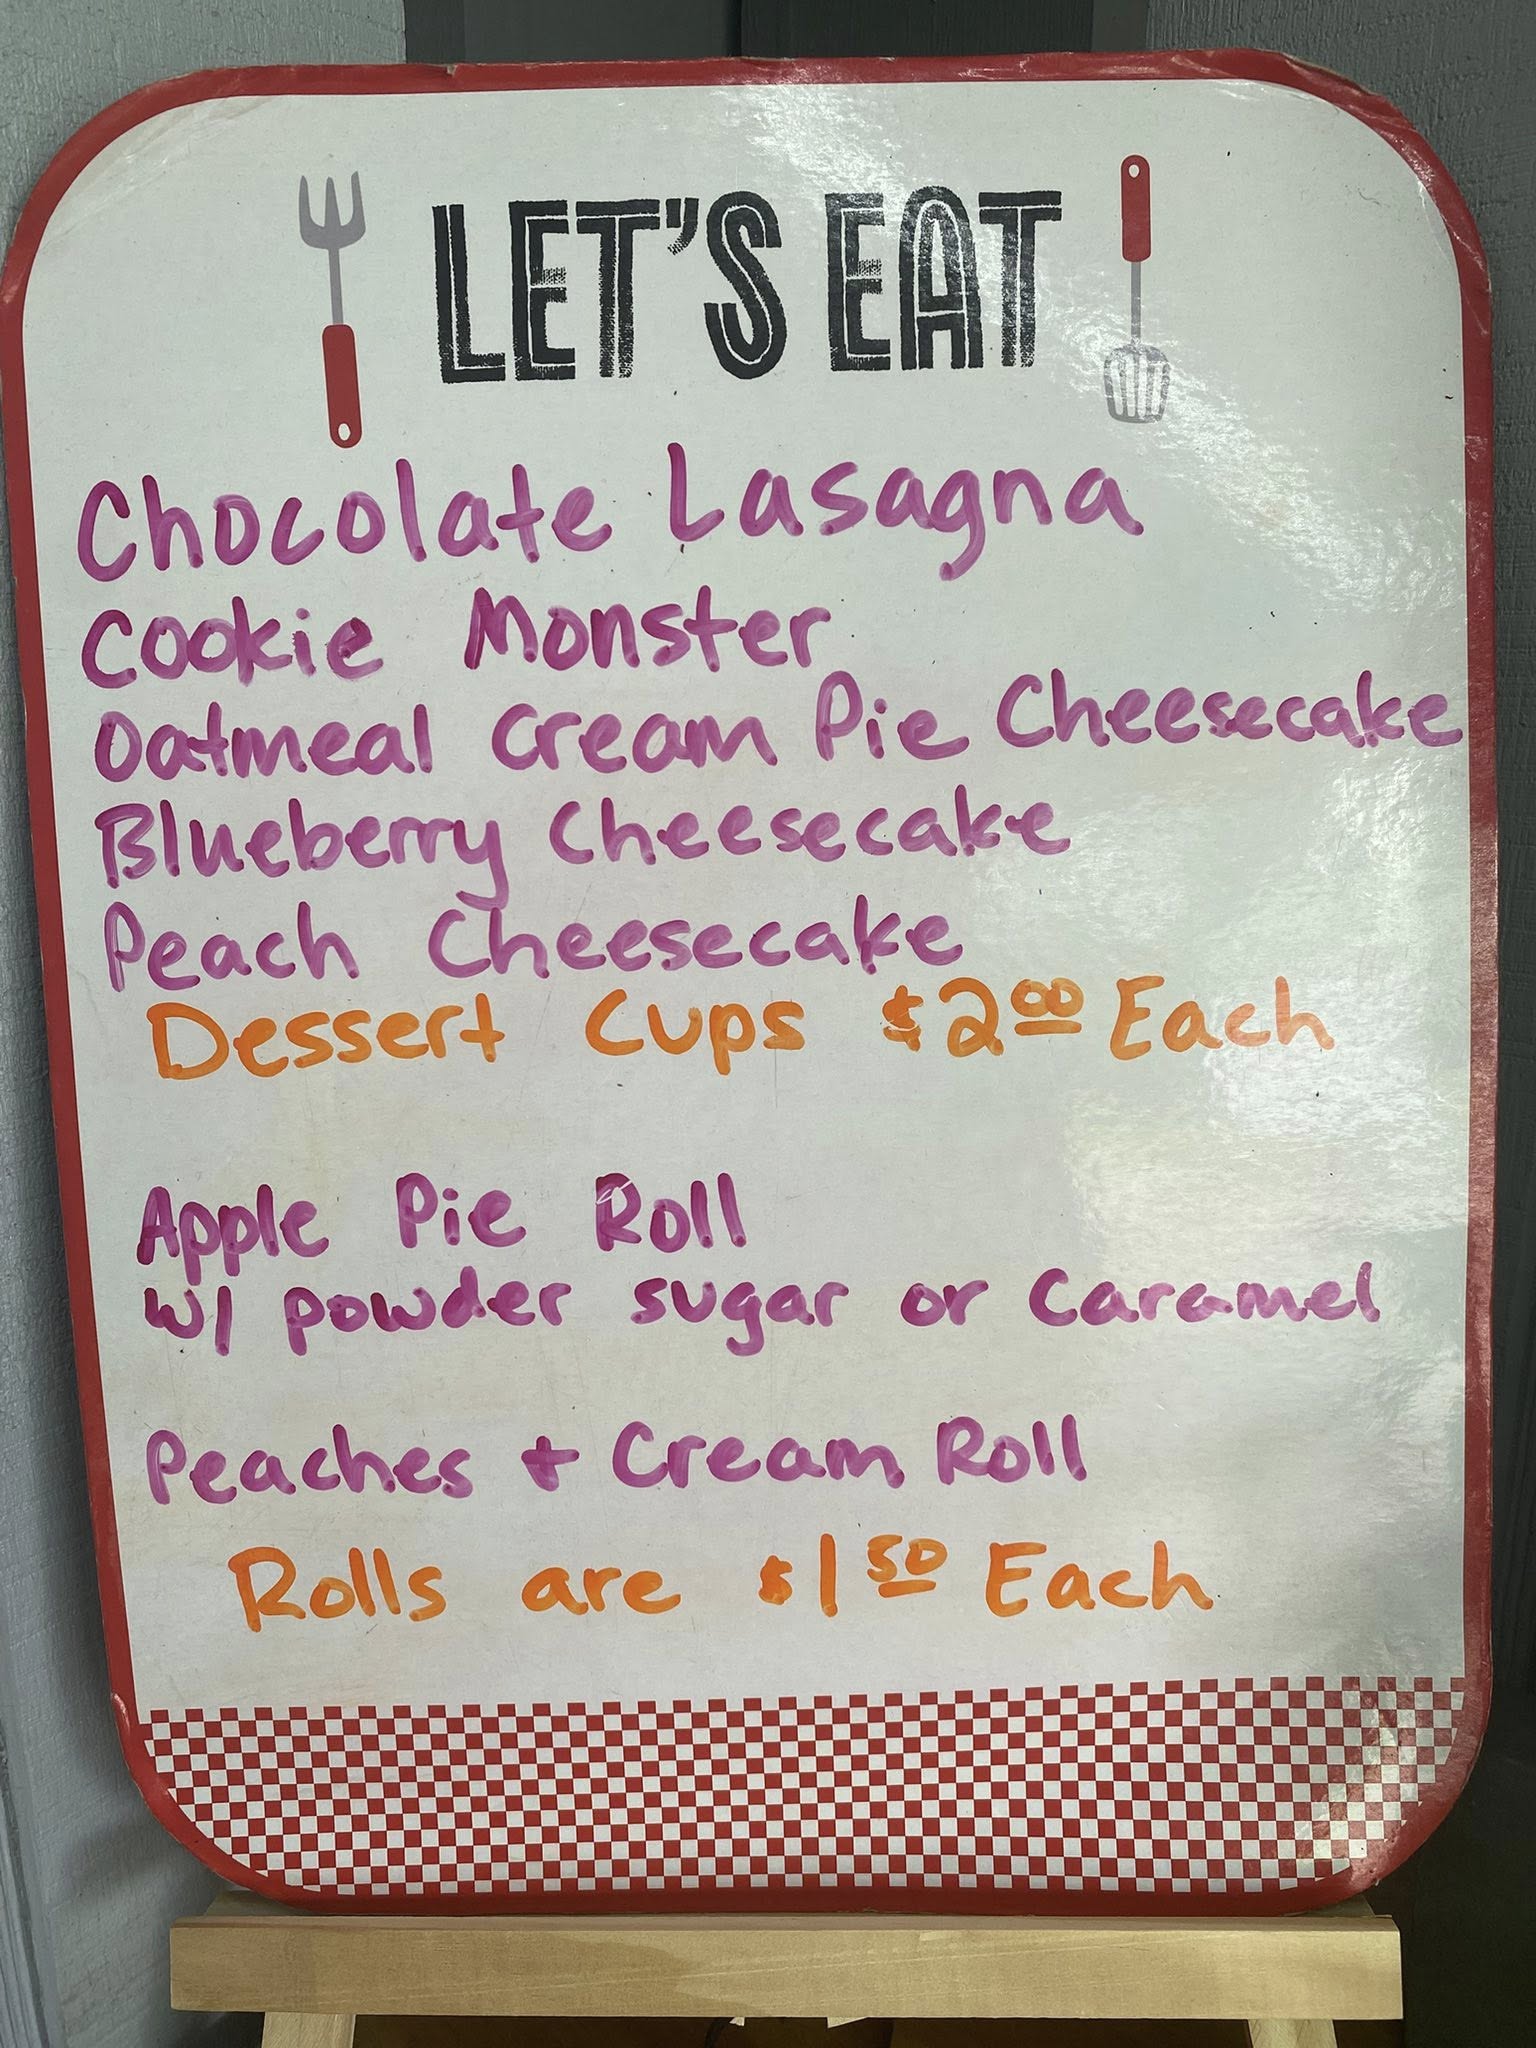 LET'S EAT
Chocolate Lasagna
Cookie Monster
Oatmeal Cream Pie Cheesecake
Blueberry Cheesecake
Peach Cheesecake
Dessert Cups $2.00 Each
Apple Pie Roll
w/ powder sugar or Caramel
Peaches + Cream Roll
Rolls are $1.50 Each